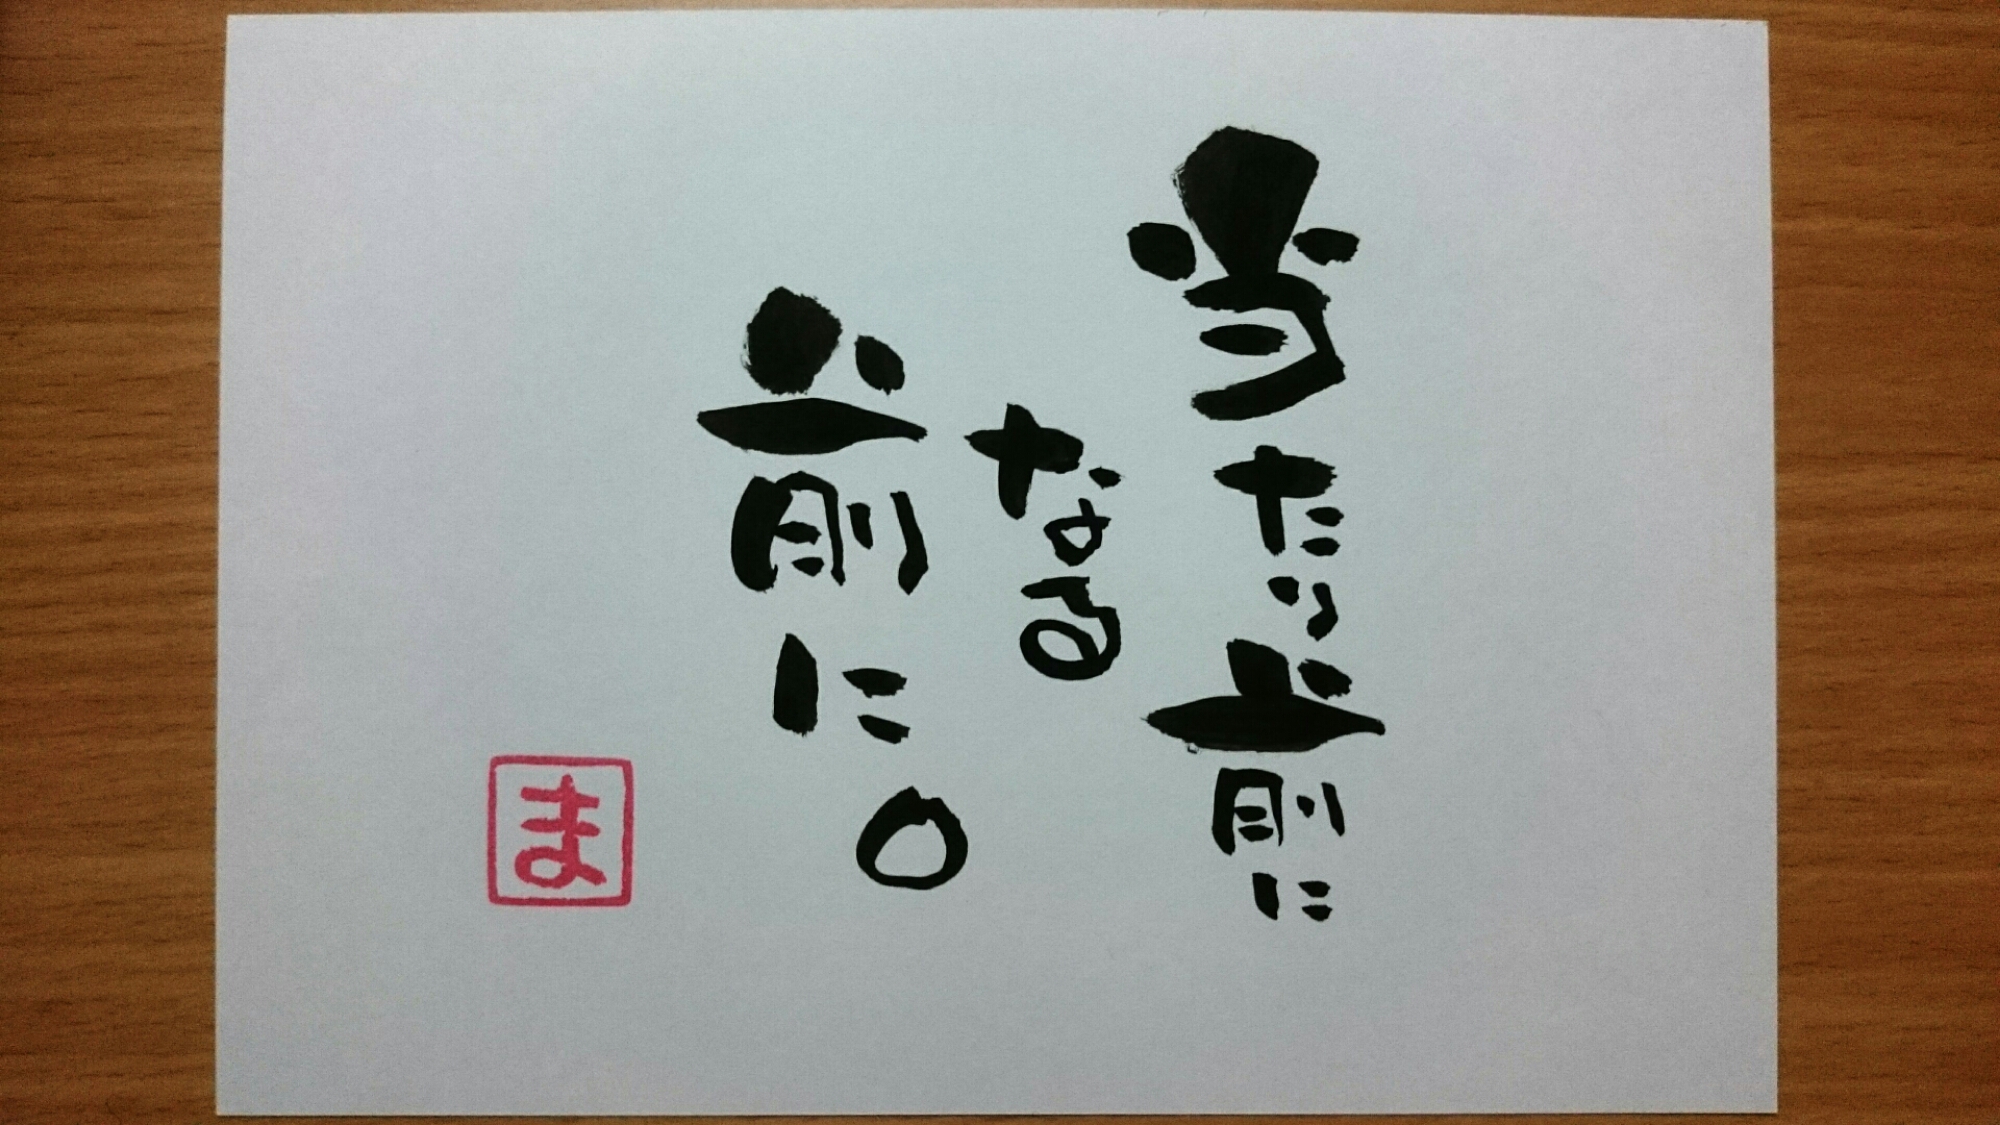 当たり前に
なる
前に。
ま